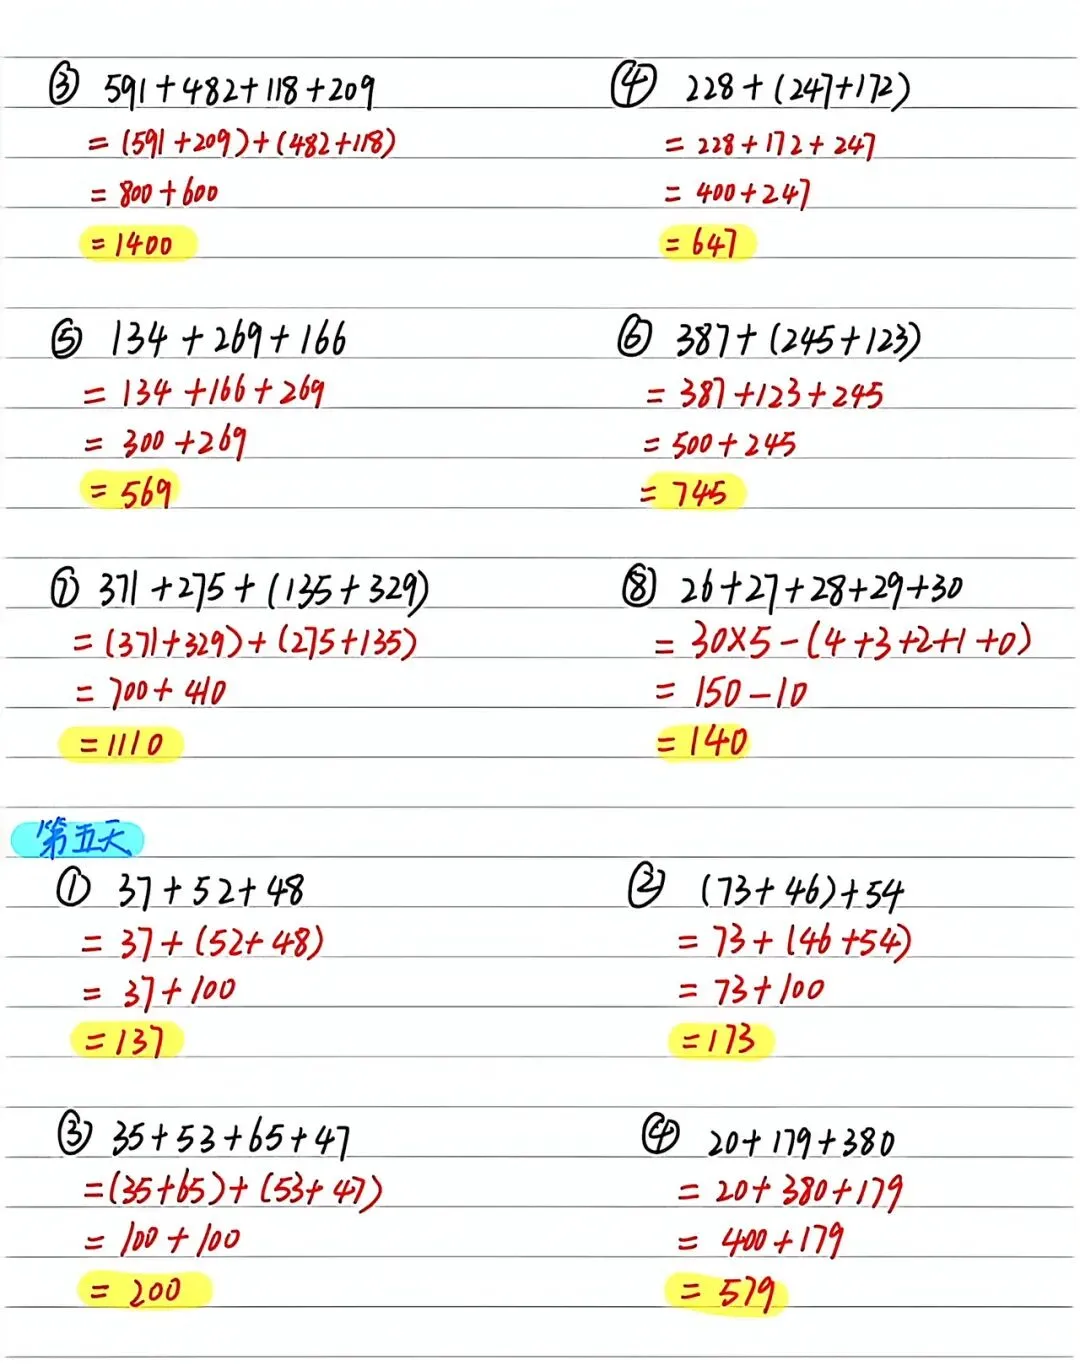 ③ 591+482+118+209
=(591+209)+(482+118)
=800+600
=1400
④ 228+(247+172)
=228+172+247
=400+247
=647
⑤ 134+269+166
=134+166+269
=300+269
=569
⑥ 387+(245+123)
=387+123+245
=500+245
=745
⑦ 371+275+(135+329)
=(371+329)+(275+135)
=700+410
=1110
⑧ 26+27+28+29+30
=30×5-(4+3+2+1+0)
=150-10
=140
第五天
① 37+52+48
=37+(52+48)
=37+100
=137
② (73+46)+54
=73+(46+54)
=73+100
=173
③ 35+53+65+47
=(35+65)+(53+47)
=100+100
=200
④ 20+179+380
=20+380+179
=400+179
=579